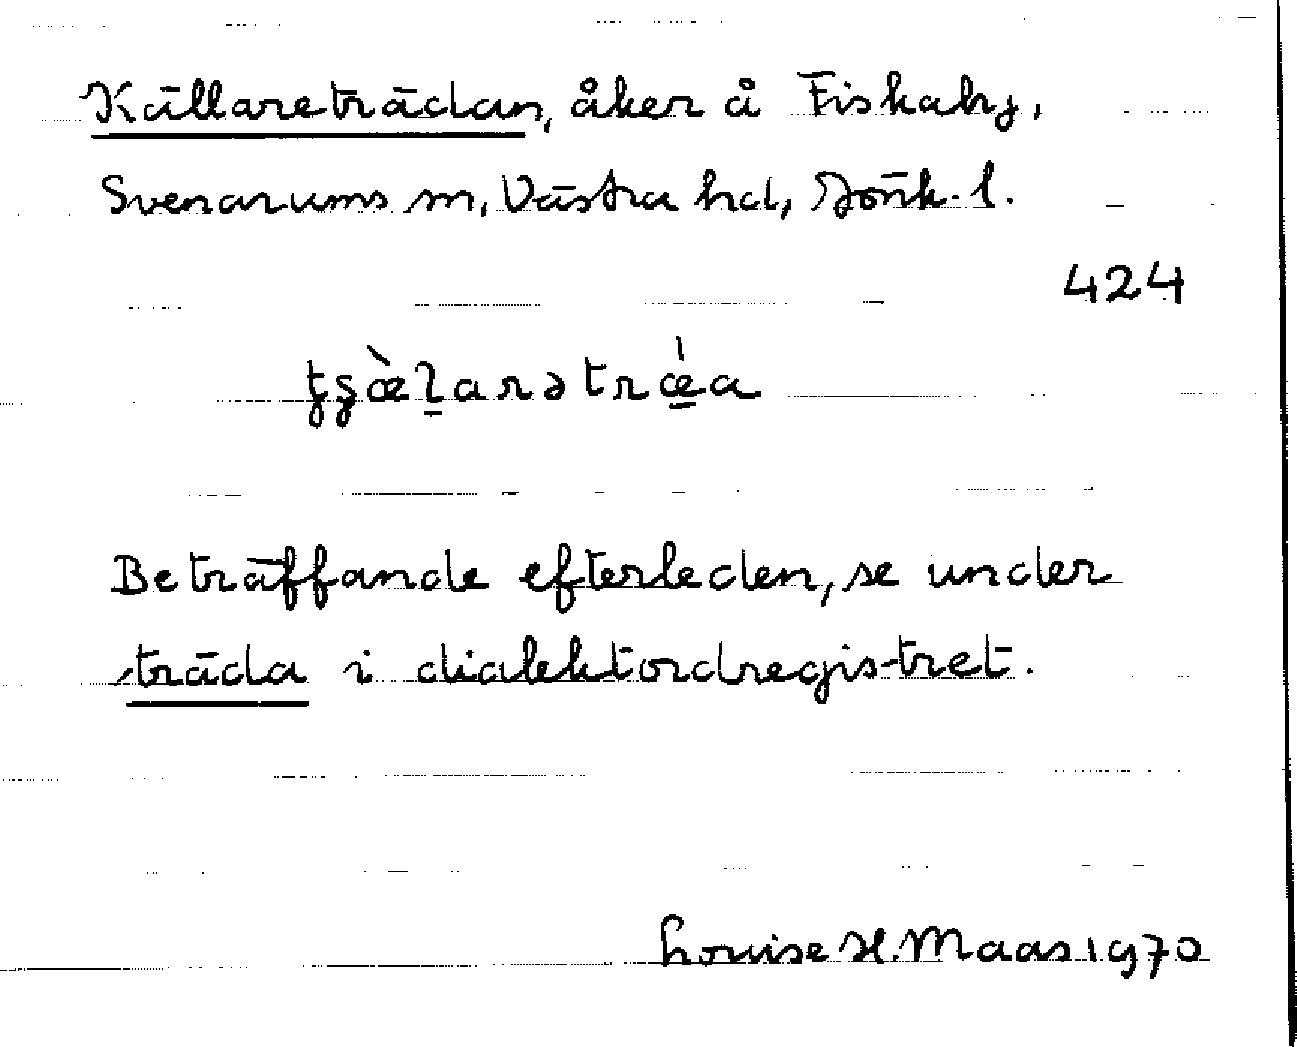 Källareträdan, åker å Fiskaby,
Svenarums sn, Västra hd, Jönk. l.
424
Beträffande efterleden, se under
träda i dialektordregistret.
Louise H. Maas 1970